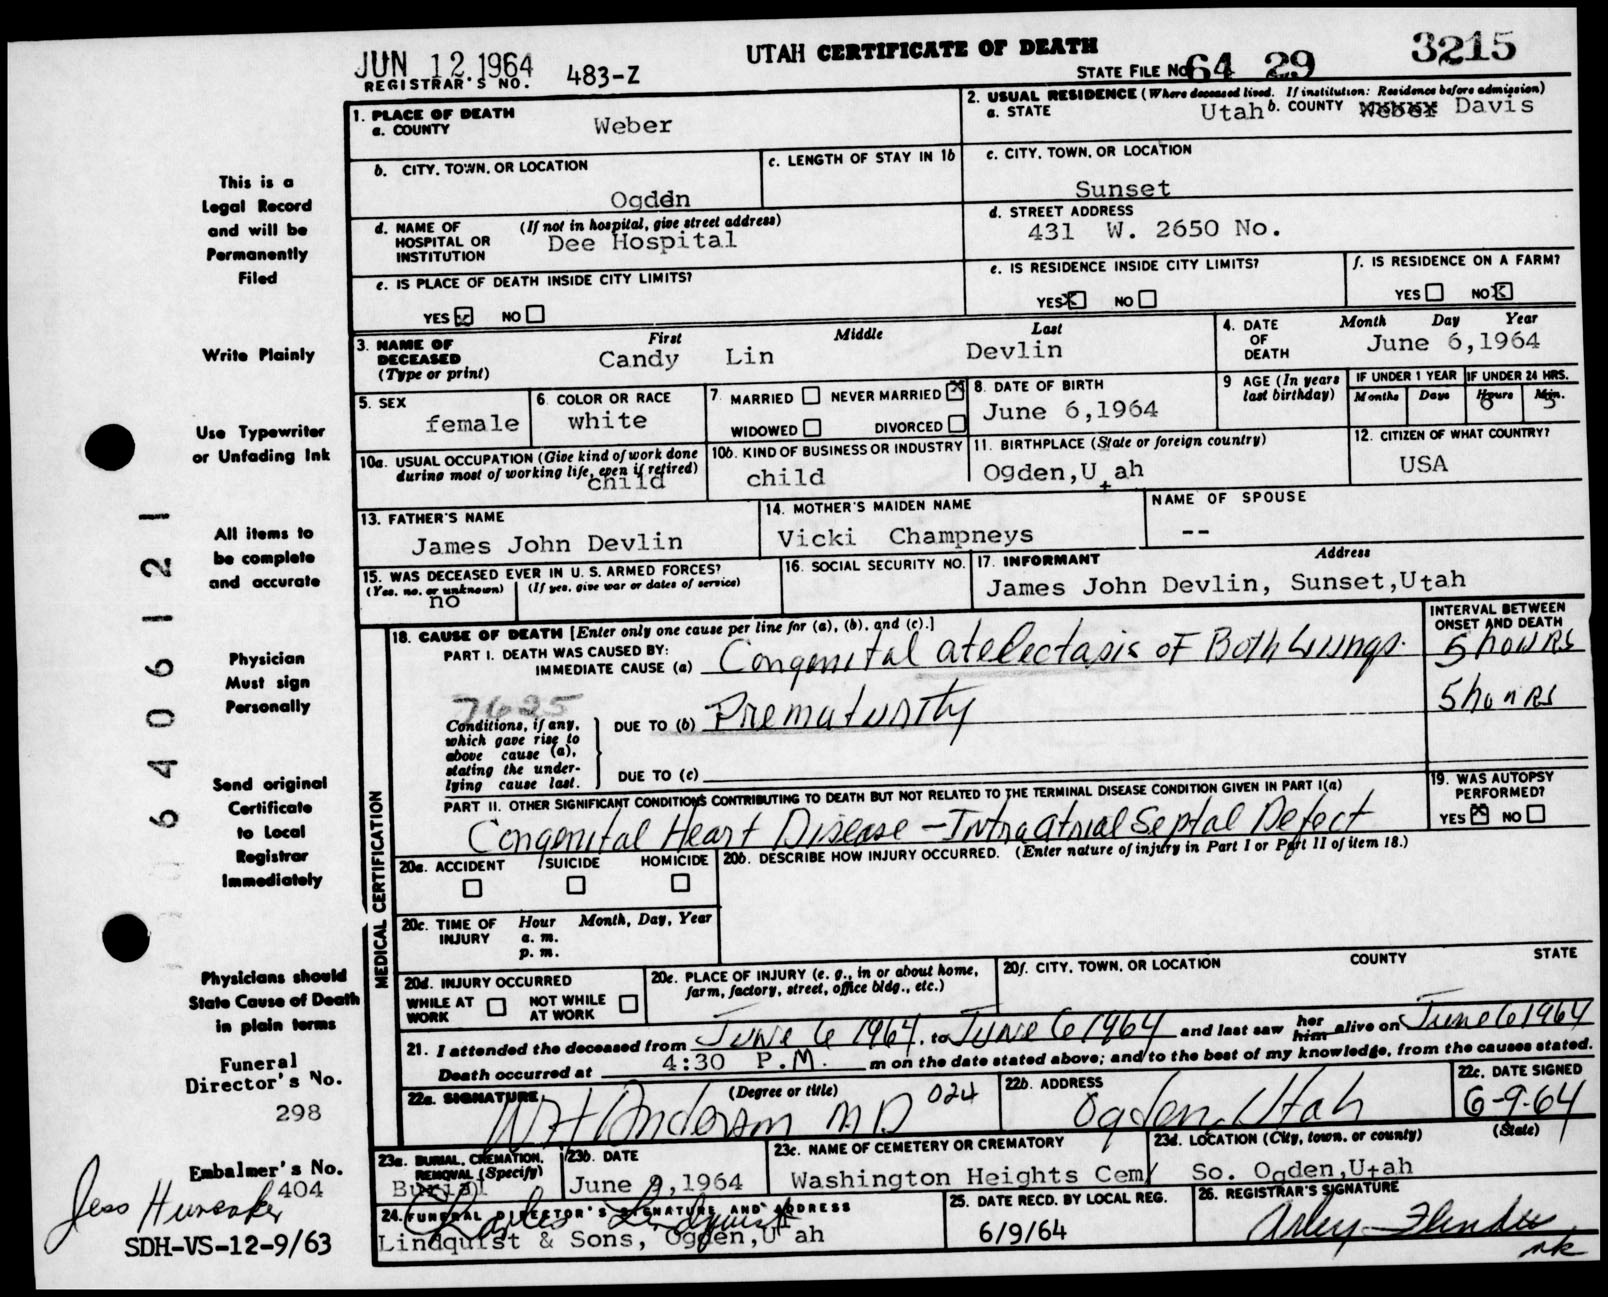 JUN 12.1964
UTAH CERTIFICATE OF DEATH
3215
REGISTRAR'S NO. 483-Z
STATE FILE No. 64 29
1. PLACE OF DEATH
a. COUNTY
Weber
2. USUAL RESIDENCE (Where deceased lived. If institution: Residence before admission)
a. STATE Utah b. COUNTY Weber Davis
b. CITY, TOWN, OR LOCATION
Ogden
c. LENGTH OF STAY IN 1b
c. CITY, TOWN, OR LOCATION
Sunset
d. NAME OF HOSPITAL OR INSTITUTION (If not in hospital, give street address)
Dee Hospital
d. STREET ADDRESS
431 W. 2650 No.
e. IS PLACE OF DEATH INSIDE CITY LIMITS?
YES NO
e. IS RESIDENCE INSIDE CITY LIMITS?
YES NO
f. IS RESIDENCE ON A FARM?
YES NO
3. NAME OF DECEASED (Type or print)
First Middle Last
Candy Lin Devlin
4. DATE OF DEATH
Month Day Year
June 6,1964
5. SEX
female
6. COLOR OR RACE
white
7. MARRIED NEVER MARRIED
WIDOWED DIVORCED
8. DATE OF BIRTH
June 6,1964
9 AGE (In years last birthday)
IF UNDER 1 YEAR
Months Days
IF UNDER 24 HRS.
Hours Min.
6 5
10a. USUAL OCCUPATION (Give kind of work done during most of working life, even if retired)
child
10b. KIND OF BUSINESS OR INDUSTRY
child
11. BIRTHPLACE (State or foreign country)
Ogden,Utah
12. CITIZEN OF WHAT COUNTRY?
USA
13. FATHER'S NAME
James John Devlin
14. MOTHER'S MAIDEN NAME
Vicki Champneys
NAME OF SPOUSE
--
15. WAS DECEASED EVER IN U. S. ARMED FORCES?
(Yes, no, or unknown) (If yes, give war or dates of service)
no
16. SOCIAL SECURITY NO.
17. INFORMANT Address
James John Devlin, Sunset,Utah
18. CAUSE OF DEATH [Enter only one cause per line for (a), (b), and (c).]
INTERVAL BETWEEN ONSET AND DEATH
PART I. DEATH WAS CAUSED BY:
IMMEDIATE CAUSE (a) Congenital atelectasis of Both Lungs. 5 hours
7625
Conditions, if any, which gave rise to above cause (a), stating the underlying cause last.
DUE TO (b) Prematurity 5 hours
DUE TO (c)
PART II. OTHER SIGNIFICANT CONDITIONS CONTRIBUTING TO DEATH BUT NOT RELATED TO THE TERMINAL DISEASE CONDITION GIVEN IN PART I(a)
Congenital Heart Disease - Intraatrial Septal Defect
19. WAS AUTOPSY PERFORMED?
YES NO
20a. ACCIDENT SUICIDE HOMICIDE
20b. DESCRIBE HOW INJURY OCCURRED. (Enter nature of injury in Part I or Part II of item 18.)
20c. TIME OF INJURY
Hour Month, Day, Year
a. m.
p. m.
20d. INJURY OCCURRED
WHILE AT WORK NOT WHILE AT WORK
20e. PLACE OF INJURY (e. g., in or about home, farm, factory, street, office bldg., etc.)
20f. CITY, TOWN, OR LOCATION COUNTY STATE
21. I attended the deceased from June 6 1964, to June 6 1964 and last saw her him alive on June 6 1964
Death occurred at 4:30 P.M. m on the date stated above; and to the best of my knowledge, from the causes stated.
22a. SIGNATURE (Degree or title)
WH Anderson MD 024
22b. ADDRESS
Ogden, Utah
22c. DATE SIGNED
6-9-64
23a. BURIAL, CREMATION, REMOVAL (Specify)
Burial
23b. DATE
June 9,1964
23c. NAME OF CEMETERY OR CREMATORY
Washington Heights Cem
23d. LOCATION (City, town, or county) (State)
So. Ogden,Utah
24. FUNERAL DIRECTOR'S SIGNATURE AND ADDRESS
Charles Lindquist
Lindquist & Sons, Ogden,Utah
25. DATE RECD. BY LOCAL REG.
6/9/64
26. REGISTRAR'S SIGNATURE
MEDICAL CERTIFICATION
This is a
Legal Record
and will be
Permanently
Filed
Write Plainly
Use Typewriter
or Unfading Ink
All items to
be complete
and accurate
Physician
Must sign
Personally
Send original
Certificate
to Local
Registrar
Immediately
Physicians should
State Cause of Death
in plain terms
Funeral
Director's No.
298
Embalmer's No.
404
SDH-VS-12-9/63
6406121